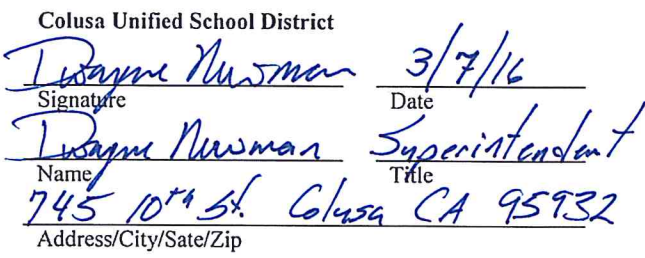 Colusa Unified School District
Dwayne Newman 3/7/16
Signature Date
Dwayne Newman Superintendent
Name Title
745 10th St. Colusa CA 95932
Address/City/Sate/Zip